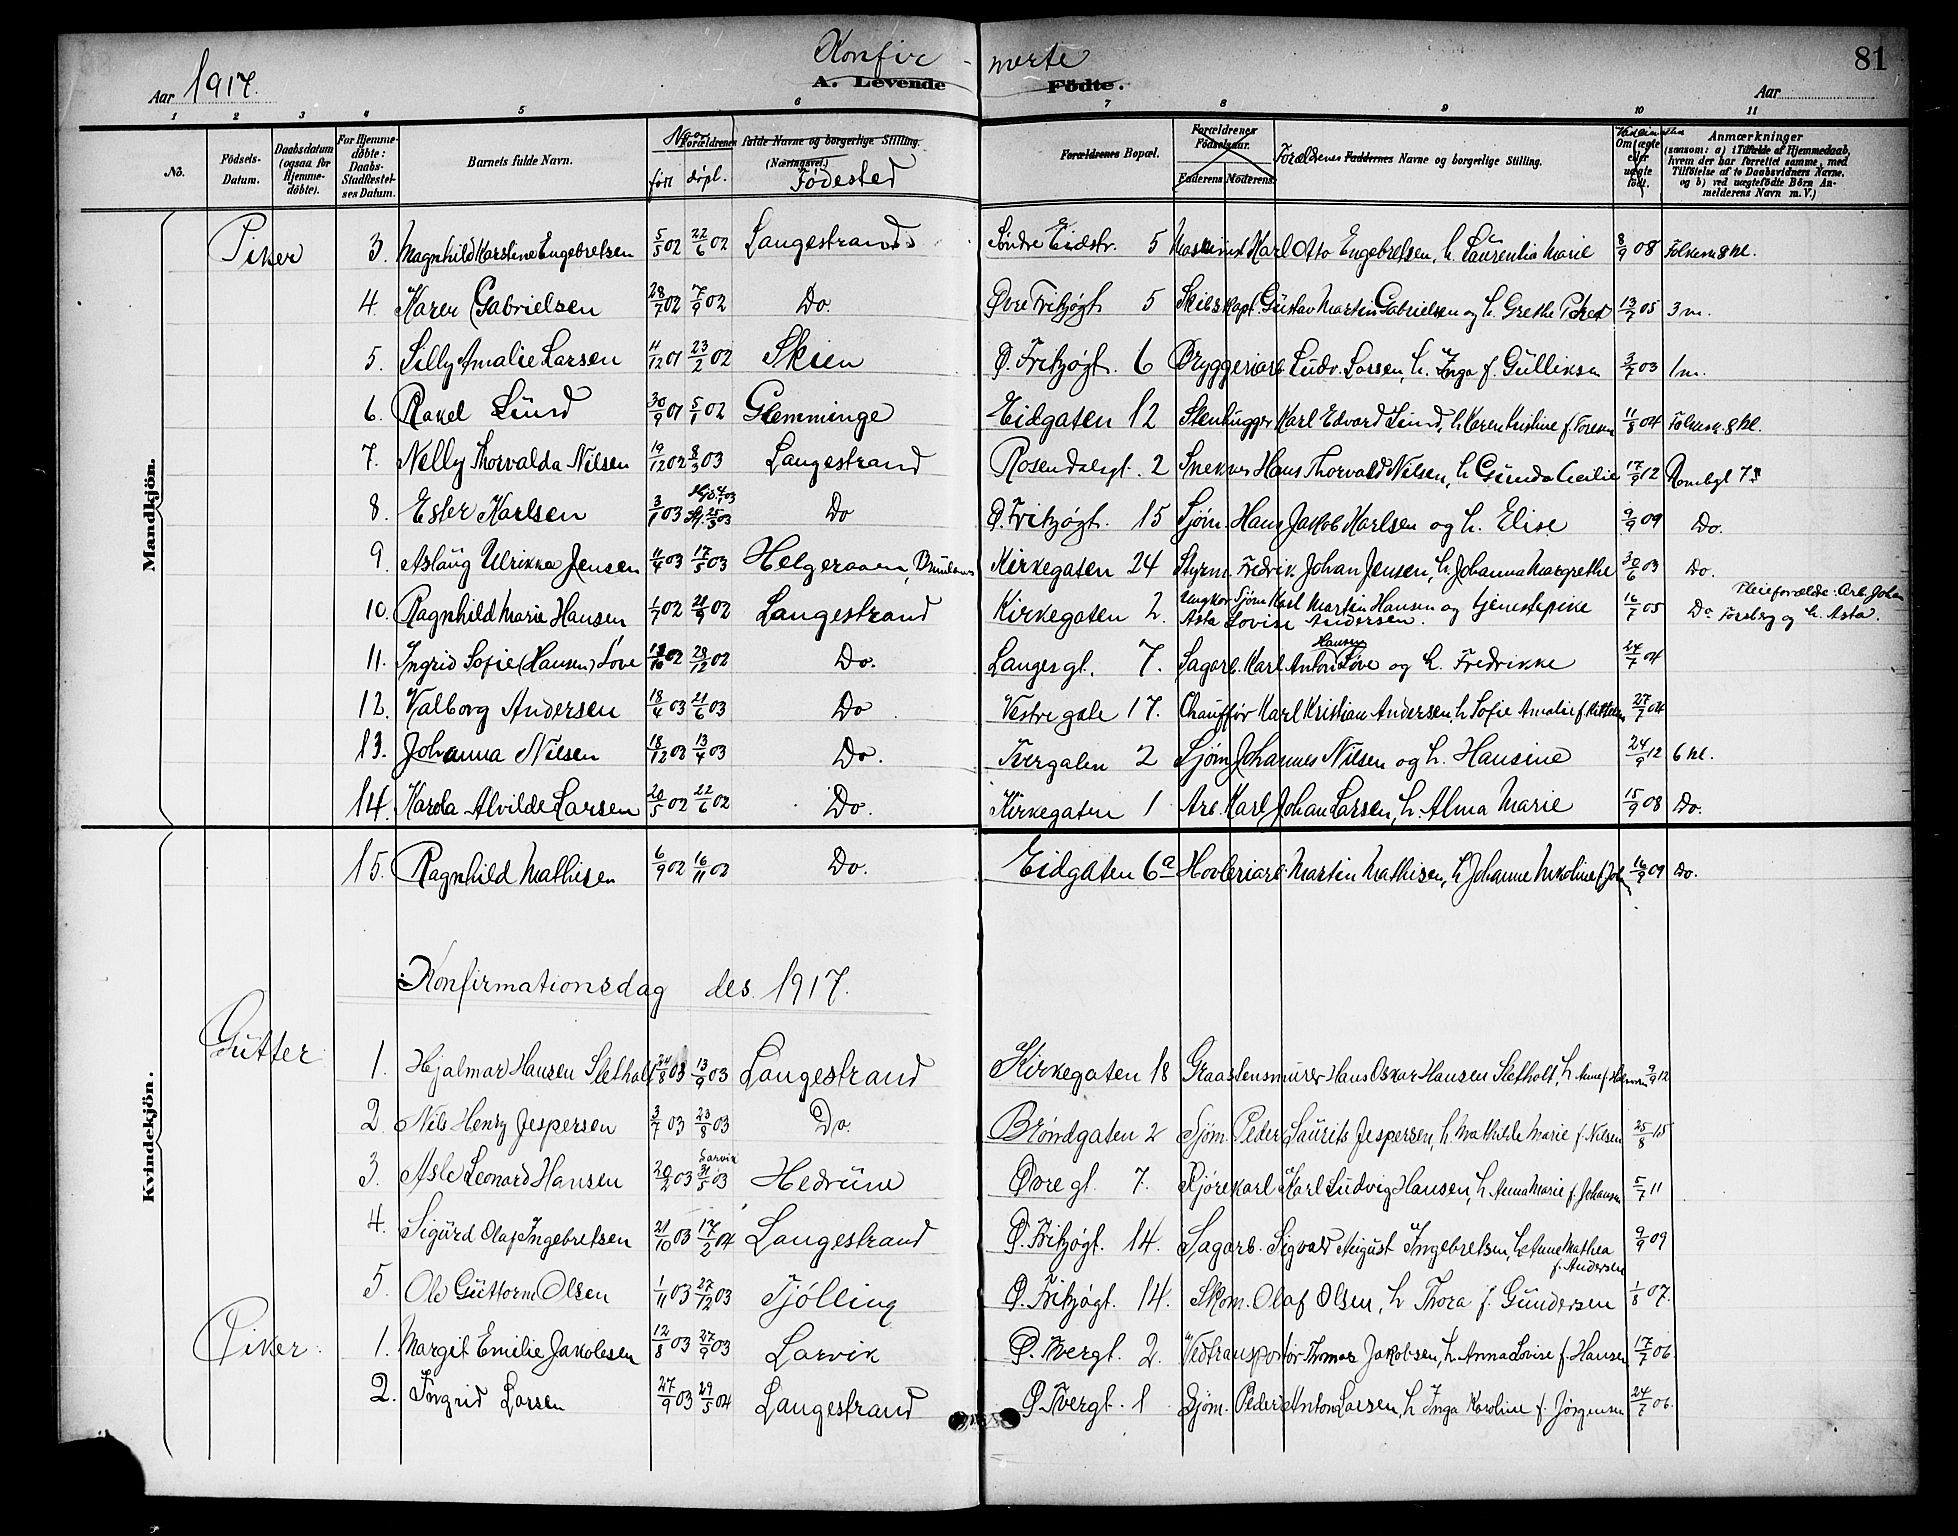 Konfir - merte
81
Aar 1917.
A. Levende Födte.
Aar
1 2 3 4 5 6 7 8 9 10 11
No.
Födsels-Datum.
Daabsdatum (ogsaa for Hjemme-döbte).
For Hjemme-döbte: Daabs-Stadfæstel-ses Datum.
Barnets fulde Navn.
Naar født døpt.
Forældrenes fulde Navne og borgerlige Stilling. (Næringsvei.)
Fødested
Forældrenes Bopæl.
Forældrenes Födselsaar. Faderens Moderens
Forældrenes Faddernes Navne og borgerlige Stilling.
Vaccinationen Om (ægte eller uægte född.
Anmærkninger (saasom: a) i Tilfælde af Hjemmedaab, hvem der har forrettet samme, med Tilföielse af to Daabsvidners Navne, og b) ved uægtefödte Börn An-melderens Navn m. V.)
Mandkjön.
Piker 3. Magnhild Karstine Engebretsen 5/5 02 22/6 02 Langestrand Søndre Eidstr. 5 Maskinist Karl Otto Engebretsen, h. Laurentia Marie 8/9 08 Folkesk 8 kl.
4. Karen Gabrielsen 28/7 02 7/9 02 Do. Øvre Fritzøgt. 5 Skibskapt. Gustav Martin Gabrielsen og h. Grethe 13/7 05 3 m.
5. Lilly Amalie Larsen 11/12 01 23/2 02 Skien Ø. Fritzøgt. 6 Bryggeriarb. Ludv. Larsen, h. Inga f. Gulliksen 3/7 03 1 m.
6. Rakel Lund 30/9 01 5/1 02 Glemminge Eidgaten 12 Stenhugger Karl Edvard Lund, h. Karen Kristine f. 11/8 04 Folkesk. 8 kl.
7. Nelly Thorvalda Nilsen 19/12 02 8/3 03 Langestrand Rosendalgt. 2 Snekker Hans Thorvald Nilsen, h Gunda Cecilie 17/9 12
8. Ester Karlsen 3/1 03 25/3 03 Do Ø. Fritzøgt. 15 Sjøm. Hans Jakob Karlsen og h. Elise 9/9 09 Do.
9. Aslaug Ulrikke Jensen 11/4 03 17/5 03 Helgeraaen, Brunlanes Kirkegaten 24 Styrm. Fredrik Johan Jensen, h Johanna Margrethe 30/6 03 Do.
10. Ragnhild Marie Hansen 1/7 02 21/9 02 Langestrand Kirkegaten 2. Ungkar Sjøm Karl Martin Hansen og tjenestepike Asta Lovise Andersen. 16/7 05 Do Pleieforælde: Arb. Johan Forsberg og h. Asta.
11. Ingrid Sofie (Hansen) Løve 18/10 02 28/12 02 Do. Langesgt. 7. Sagarb. Karl Anton Hansen Løve og h. Fredrikke 24/7 04
12. Valborg Andersen 18/4 03 21/6 03 Do Vestre gate 17. Chauffør Karl Kristian Andersen, h Sofie Amalie f. 27/7 04
13. Johanna Nilsen 18/12 03 13/4 03 Do. Tvergaten 2 Sjøm Johannes Nilsen og h. Hansine 24/9 12 6 kl.
14. Karola Alvilde Larsen 20/5 02 22/6 02 Do. Kirkegaten 1 Arb. Karl Johan Larsen, h. Alma Marie 15/9 08 Do.
15. Ragnhild Mathisen 6/9 02 16/11 02 Do. Eidgaten 6a Høvleriarb. Martin Mathisen, h Johanne Nikoline f. Joh 16/9 09 Do.
Kvindekjön.
Konfirmationsdag des. 1917.
Gutter 1. Hjalmar Hansen Sletholt 24/8 03 13/9 03 Langestrand Kirkegaten 18 Graastensmurer Hans Oskar Hansen Sletholt, h Anne f. 9/9 12
2. Nils Henry Jespersen 3/7 03 23/8 03 Do. Brøndgaten 2 Sjøm. Peder Laurits Jespersen, h. Mathilde Marie f. Nilsen 25/8 15
3. Asle Leonard Hansen 20/2 03 Larvik 31/5 03 Hedrum Øvre gt. 7. Kjørekarl Karl Ludvig Hansen, h Anna Marie f. Johansen 5/7 11
4. Sigurd Olaf Ingebretsen 21/10 03 17/2 04 Langestrand Ø. Fritzøgt. 14. Sagarb. Sigvald August Ingebretsen, h Anne Mathea f. Andersen 9/9 09
5. Ole Guttorm Olsen 1/11 03 27/12 03 Tjølling Ø. Fritzøgt. 14. Skom. Olaf Olsen, h Thora f. Gundersen 1/8 07.
Piker. 1. Margit Emilie Jakobsen 12/8 03 27/9 03 Larvik Ø. Tvergt. 2. Vedtransportør Thomas Jakobsen, h. Anna Lovise f. Hansen 17/7 06.
2. Ingrid Larsen 27/9 03 29/5 04 Langestrand Ø. Tvergt. 1 Sjøm. Peder Anton Larsen, h Inga Karoline f. Jørgensen 24/7 06.